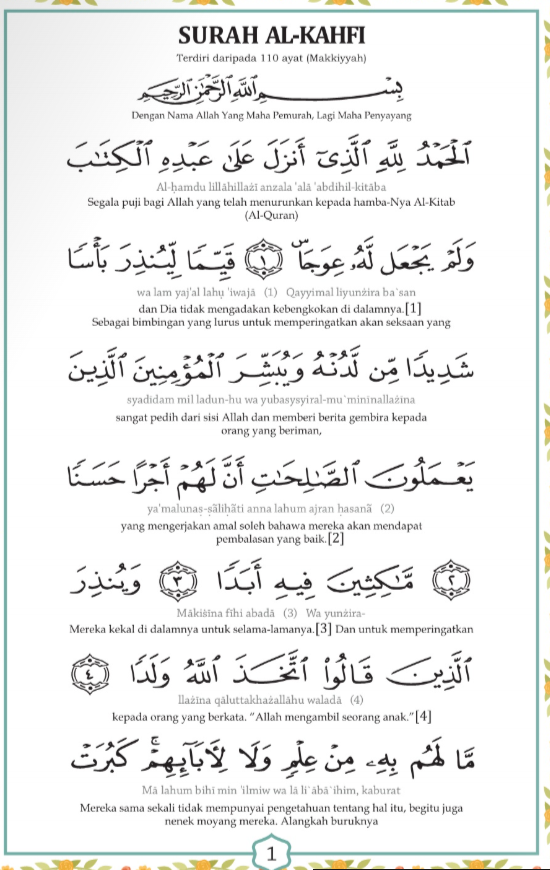 SURAH AL-KAHFI
Terdiri daripada 110 ayat (Makkiyyah)
بِسْمِ اللَّهِ الرَّحْمَٰنِ الرَّحِيمِ
Dengan Nama Allah Yang Maha Pemurah, Lagi Maha Penyayang
ٱلْحَمْدُ لِلَّهِ ٱلَّذِىٓ أَنزَلَ عَلَىٰ عَبْدِهِ ٱلْكِتَٰبَ
Al-ḥamdu lillāhillażī anzala 'alā 'abdihil-kitāba
Segala puji bagi Allah yang telah menurunkan kepada hamba-Nya Al-Kitab
(Al-Quran)
وَلَمْ يَجْعَل لَّهُۥ عِوَجَاۜ ١ قَيِّمًا لِّيُنذِرَ بَأْسًا
wa lam yaj'al lahụ 'iwajā (1) Qayyimal liyunżira ba`san
dan Dia tidak mengadakan kebengkokan di dalamnya.[1]
Sebagai bimbingan yang lurus untuk memperingatkan akan seksaan yang
شَدِيدًا مِّن لَّدُنْهُ وَيُبَشِّرَ ٱلْمُؤْمِنِينَ ٱلَّذِينَ
syadīdam mil ladun-hu wa yubasysyiral-mu`minīnallażīna
sangat pedih dari sisi Allah dan memberi berita gembira kepada
orang yang beriman,
يَعْمَلُونَ ٱلصَّٰلِحَٰتِ أَنَّ لَهُمْ أَجْرًا حَسَنًا
ya'malunaṣ-ṣāliḥāti anna lahum ajran ḥasanā (2)
yang mengerjakan amal soleh bahawa mereka akan mendapat
pembalasan yang baik.[2]
٢ مَّٰكِثِينَ فِيهِ أَبَدًا ٣ وَيُنذِرَ
Mākiṡīna fīhi abadā (3) Wa yunżira-
Mereka kekal di dalamnya untuk selama-lamanya.[3] Dan untuk memperingatkan
ٱلَّذِينَ قَالُوا۟ ٱتَّخَذَ ٱللَّهُ وَلَدًا ٤
llażīna qāluttakhażallāhu waladā (4)
kepada orang yang berkata. “Allah mengambil seorang anak.”[4]
مَّا لَهُم بِهِۦ مِنْ عِلْمٍ وَلَا لِءَابَآئِهِمْ ۚ كَبُرَتْ
Mā lahum bihī min 'ilmiw wa lā li`ābā`ihim, kaburat
Mereka sama sekali tidak mempunyai pengetahuan tentang hal itu, begitu juga
nenek moyang mereka. Alangkah buruknya
1